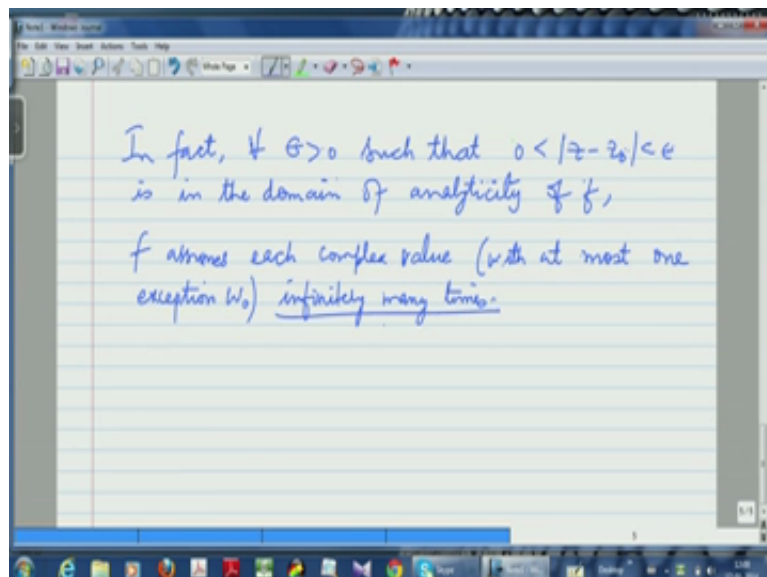 Note1 - Windows Journal
File Edit View Insert Actions Tools Help
Whole Page
In fact, ∀ ϵ>0 such that 0<|z-z₀|<ϵ
is in the domain of analyticity of f,
f assumes each complex value (with at most one
exception w₀) infinitely many times.
5/5
5
Skype
Desktop